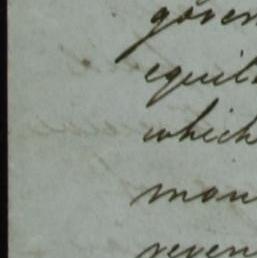 gover
equil
which
mon
reven